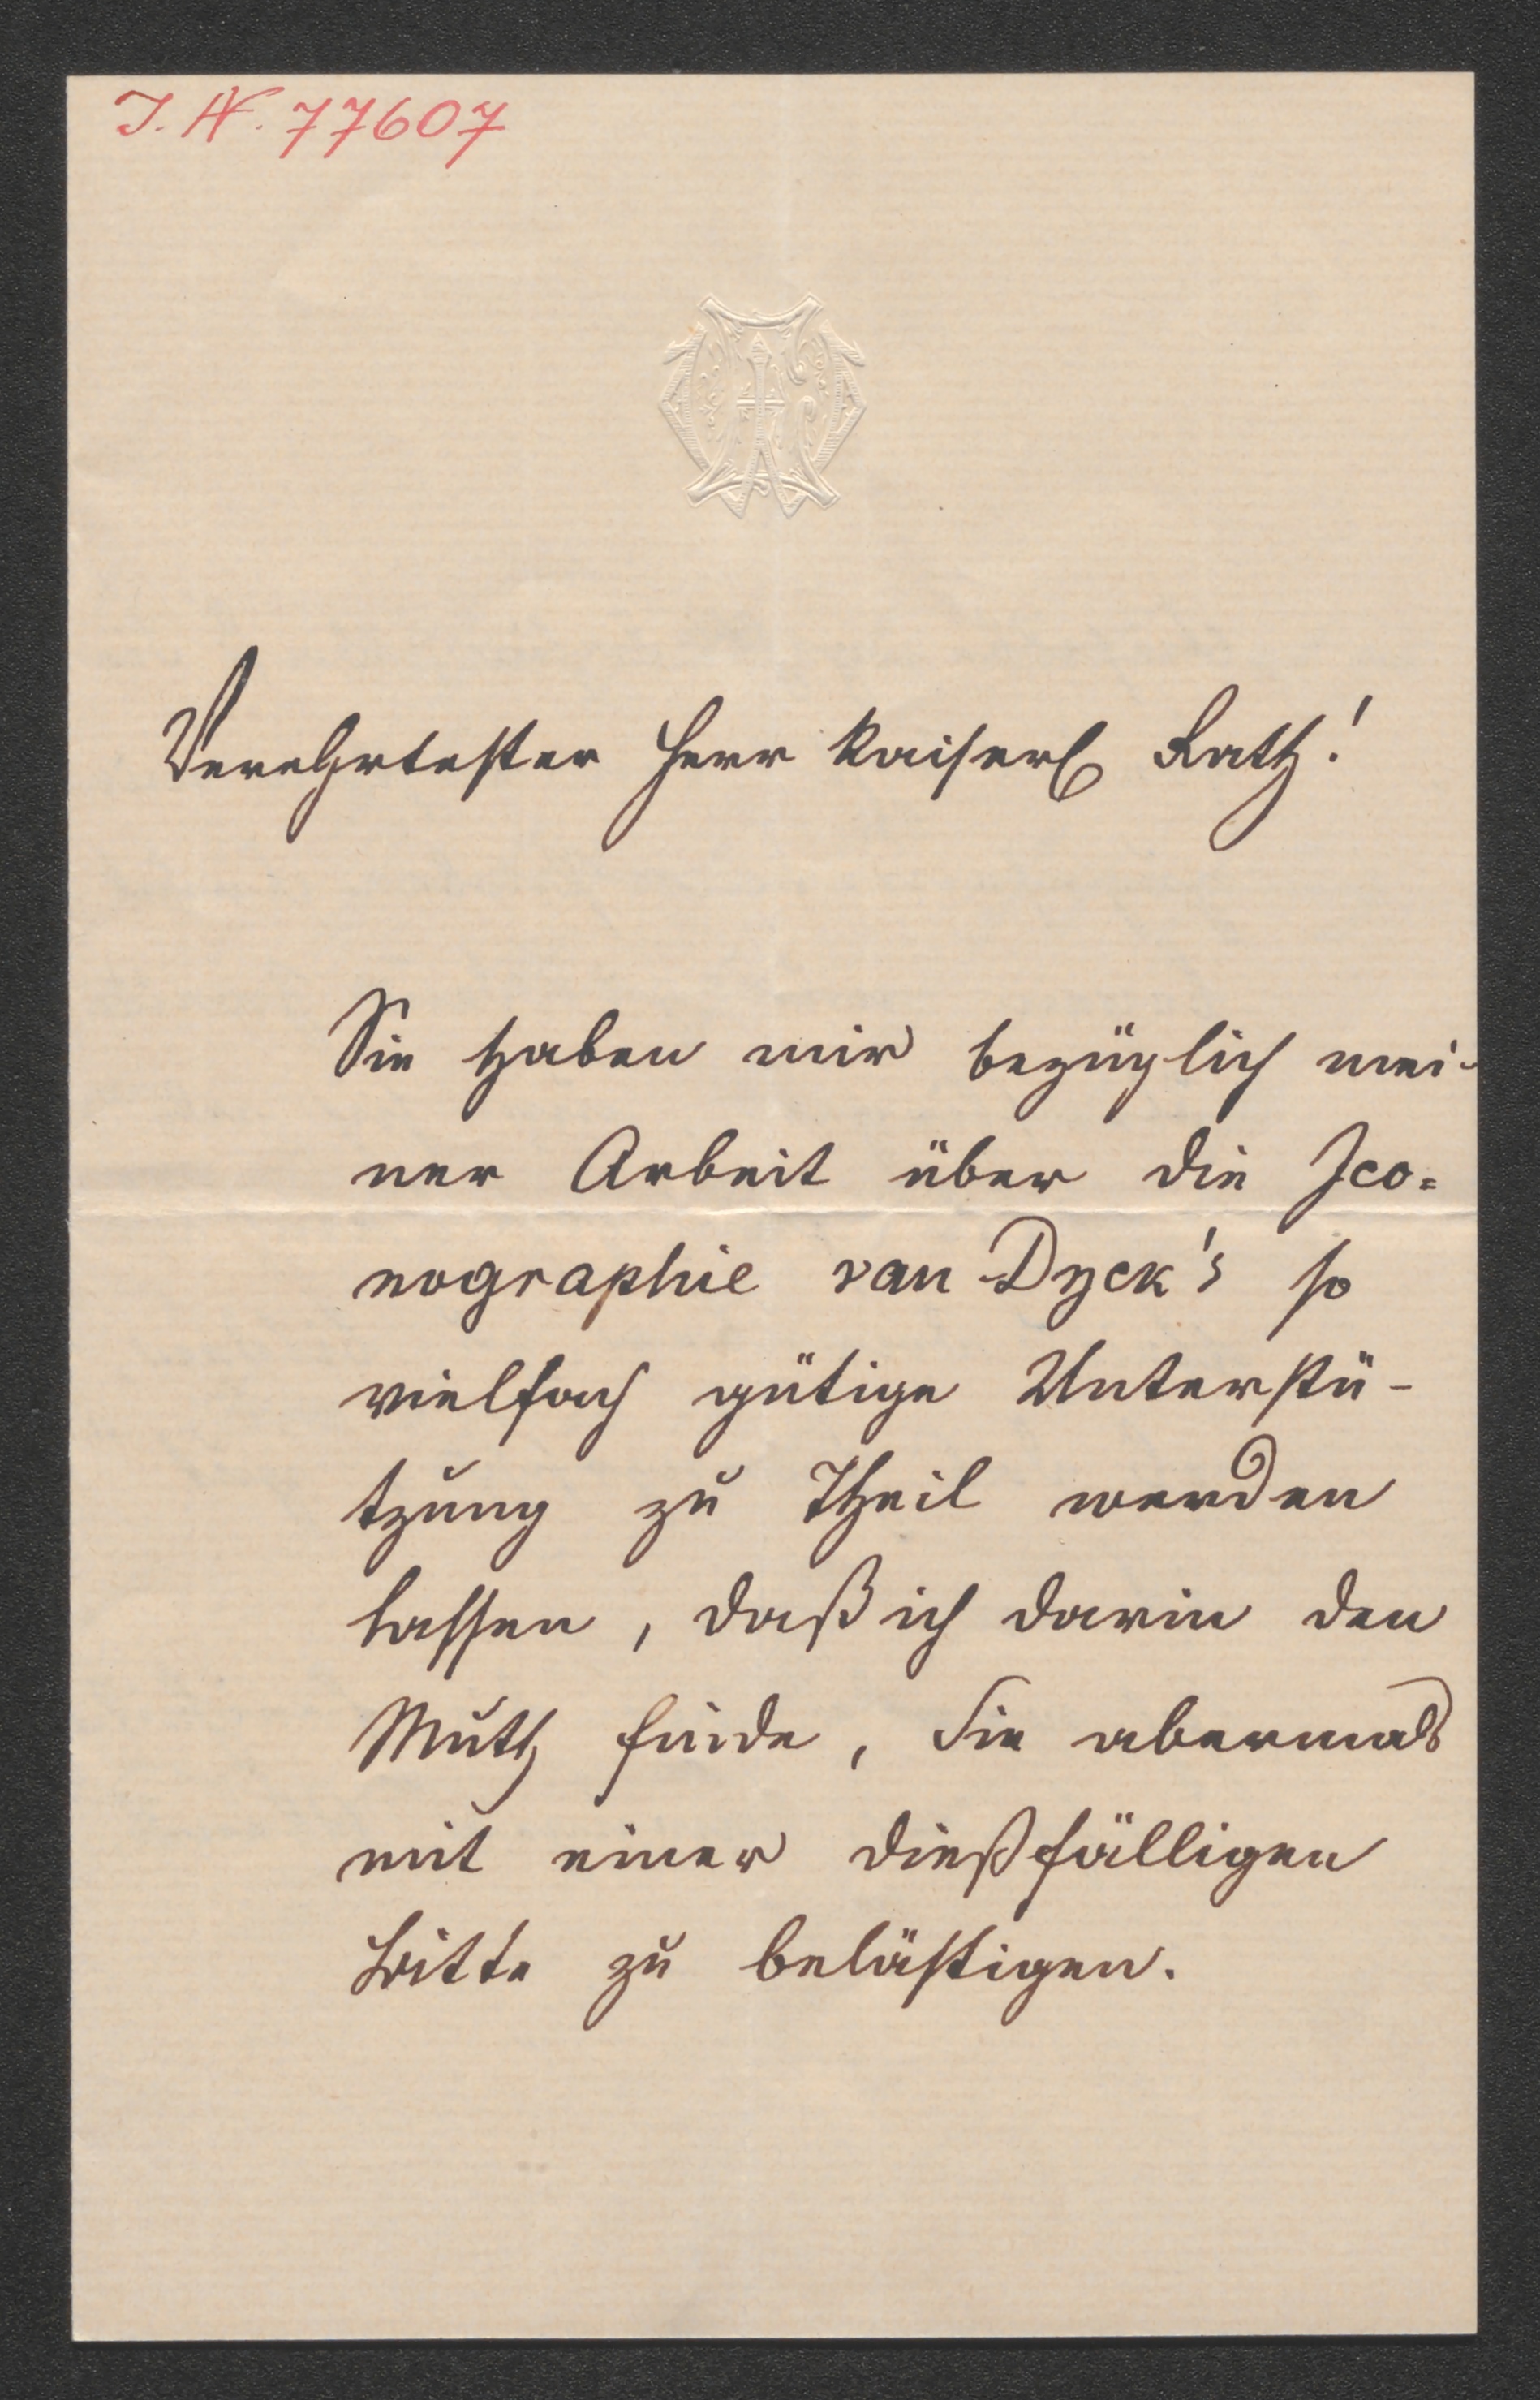 J. N. 77607
Verehrtester Herr kaiserl Rath!
Sie haben mir bezüglich mei-
ner Arbeit über die Ico=
nographie van Dyck's so
vielfach gütige Unterstü-
tzung zu Theil werden
lassen, daß ich darin den
Muth finde, Sie abermals
mit einer dießfälligen
Bitte zu belästigen.